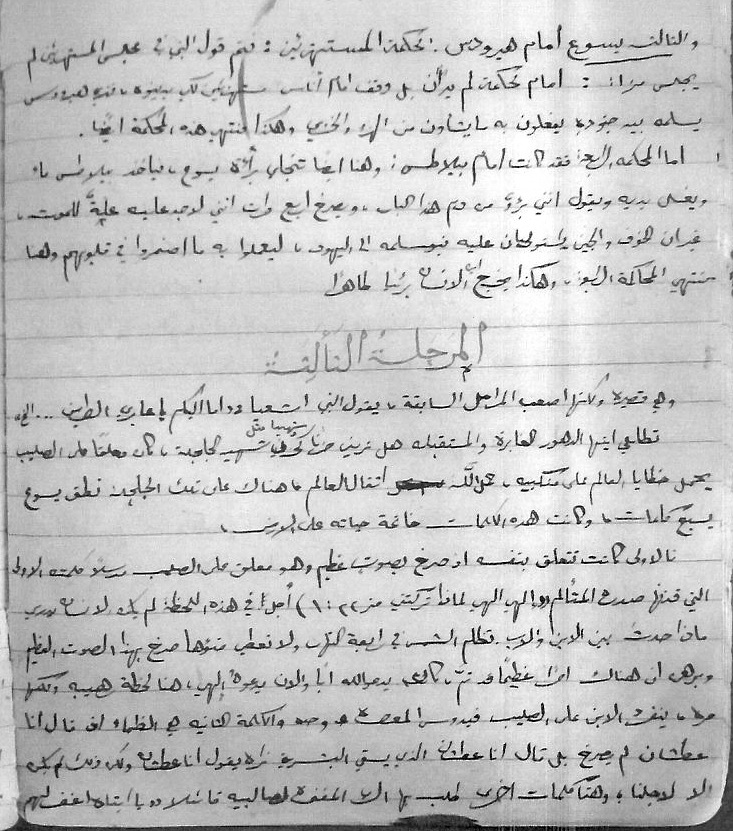 والثالث يسوع أمام هيرودس. محكمة المستهزئين: فتم قول النبي في مجلس المستهزئين لم
يجلس مرة: أمام محكمة لم بل وقف أمام أناس مستهزئين لكي هيرودس
يسلمه بيد جنوده يفعلون به ما يشاؤون من الهزء والخزي وهكذا تنتهي هذه المحكمة أيضا.
أما المحكمة الرابعة فقد كانت أمام بيلاطس: وهنا أيضا تتجلى براءة يسوع، فيأخذ بيلاطس ماء
ويغسل يديه ويقول انني بريء من دم هذا البار، ويصرخ أربع مرات انني لا أجد عليه علة للموت،
غير ان الخوف والجبن يستوليان عليه فيسلمه الى اليهود، ليفعلوا به ما أضمروا في قلوبهم وهنا
تنتهي المحاكمة الرابعة، وهكذا يخرج ابن الانسان بريئا طاهرا
المرحلة الثالثة
وهي قصيرة ولكنها أصعب المراحل السابقة، يقول النبي ارشعيا أما اليكم يا عابري الطريق ... الخ،
تطلعي أيتها الدهور الغابرة والمستقبلة هل ترين حزنا كحزني شهيد الجلجلة، كان معلقا على الصليب
يحمل خطايا العالم على منكبيه، أثقال العالم، هناك على تلك الجلجلة نطق يسوع
سبع كلمات، وكانت هذه الكلمات خاتمة حياته على الأرض،
فالأولى كانت تتعلق بنفسه اذ صرخ بصوت عظيم وهو معلق على الصليب كلمته الأولى
التي صدره المتألم (الهي الهي لماذا تركتني مز ٢٢: ١) أجل في هذه اللحظة لم يكن لانسان يدري
ماذا حدث بين الابن والآب. تظلم الشمس في رابعة النهار ولا تعطي ضوءها صرخ بهذا الصوت العظيم
وبرهن ان هناك أمرا عظيما قد تم، كان يدعو الله أبا والآن يدعوه الهي، هنا لحظة رهيبة ولكنها
مرة، ينفرد الابن على الصليب فيدوس المعصرة وحده والكلمة الثانية هي الظماء اذ قال أنا
عطشان لم يصرخ بل قال أنا عطشان الذي يسقي البشر نراه يقول أنا عطشان ولكن ذلك لم يكن
الا لأجلنا، وهنا كلمات أخرى طلب بها المغفرة لصالبيه قائلا يا أبتاه اغفر لهم